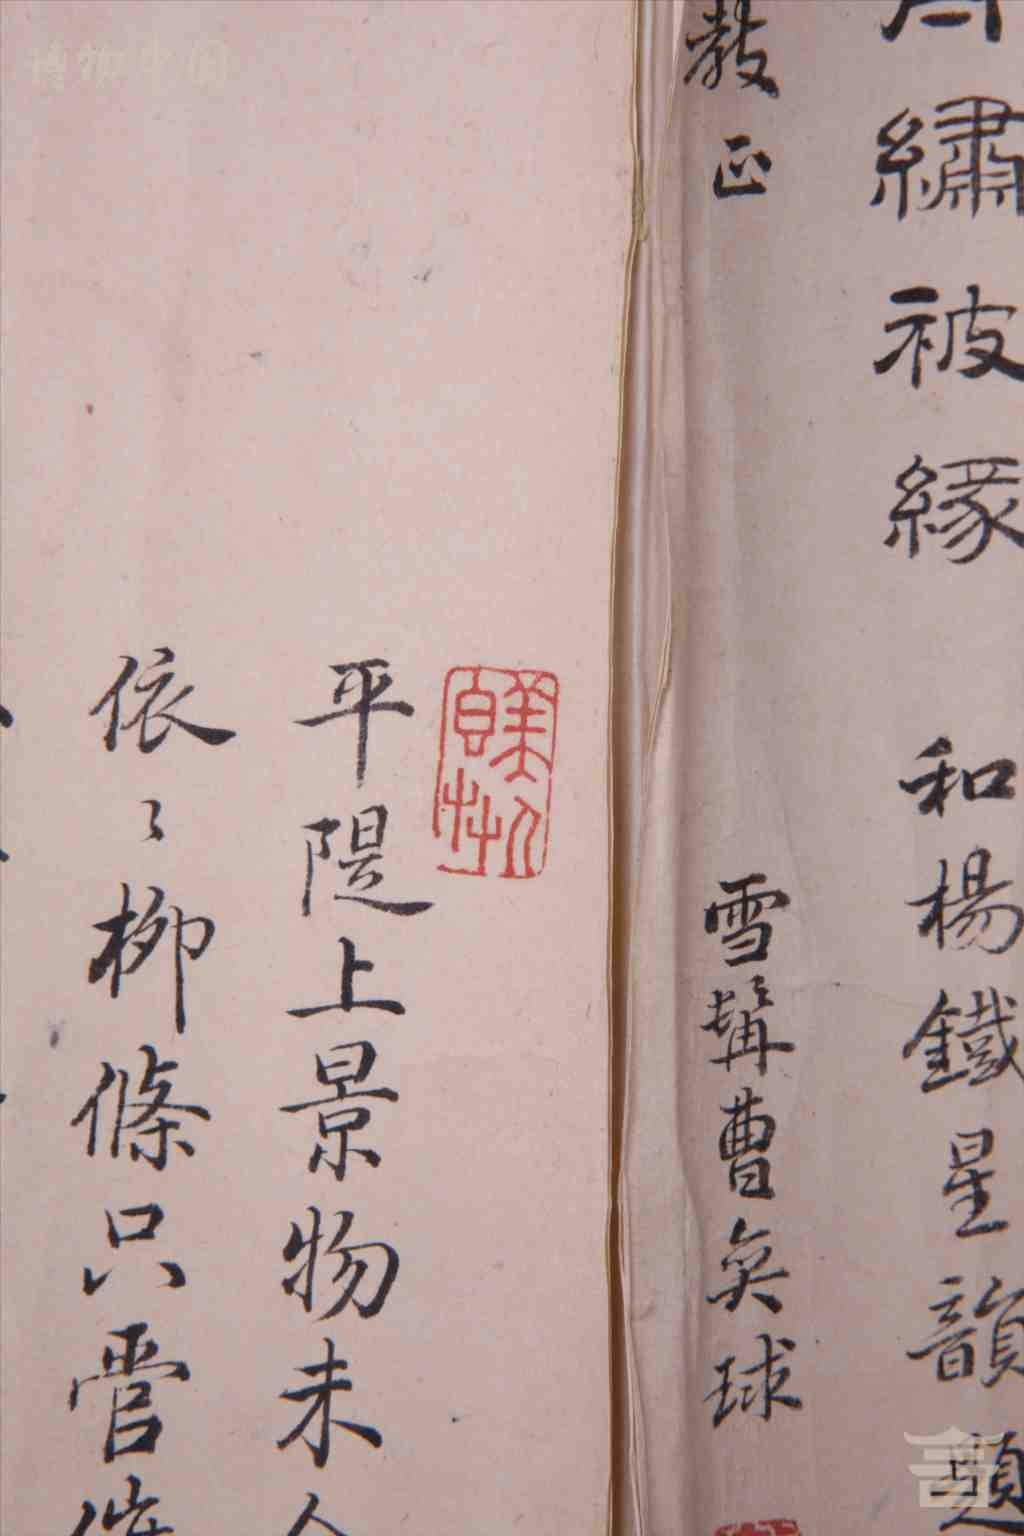 繡被緣
和楊鐵星韻題
教正
雪髯曹奐球
平隄上景物未
依〻柳條只管
博物中国